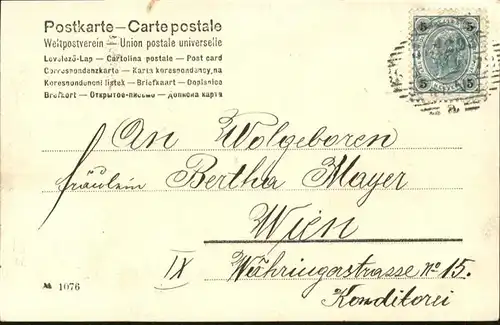 Postkarte — Carte postale
Weltpostverein — Union postale universelle
Levelező-Lap — Cartolina postale — Post card
Correspondenzkarte — Karta korespondencyjna
Korespondenční lístek — Briefkaart — Dopisnice
Brefkort — Открытое-письмо — Дописна карта
5 5
5 5
An Wolgeboren
Fräulein Bertha Mayer
Wien
IX Währingerstrasse No 15.
Konditorei
№ 1076